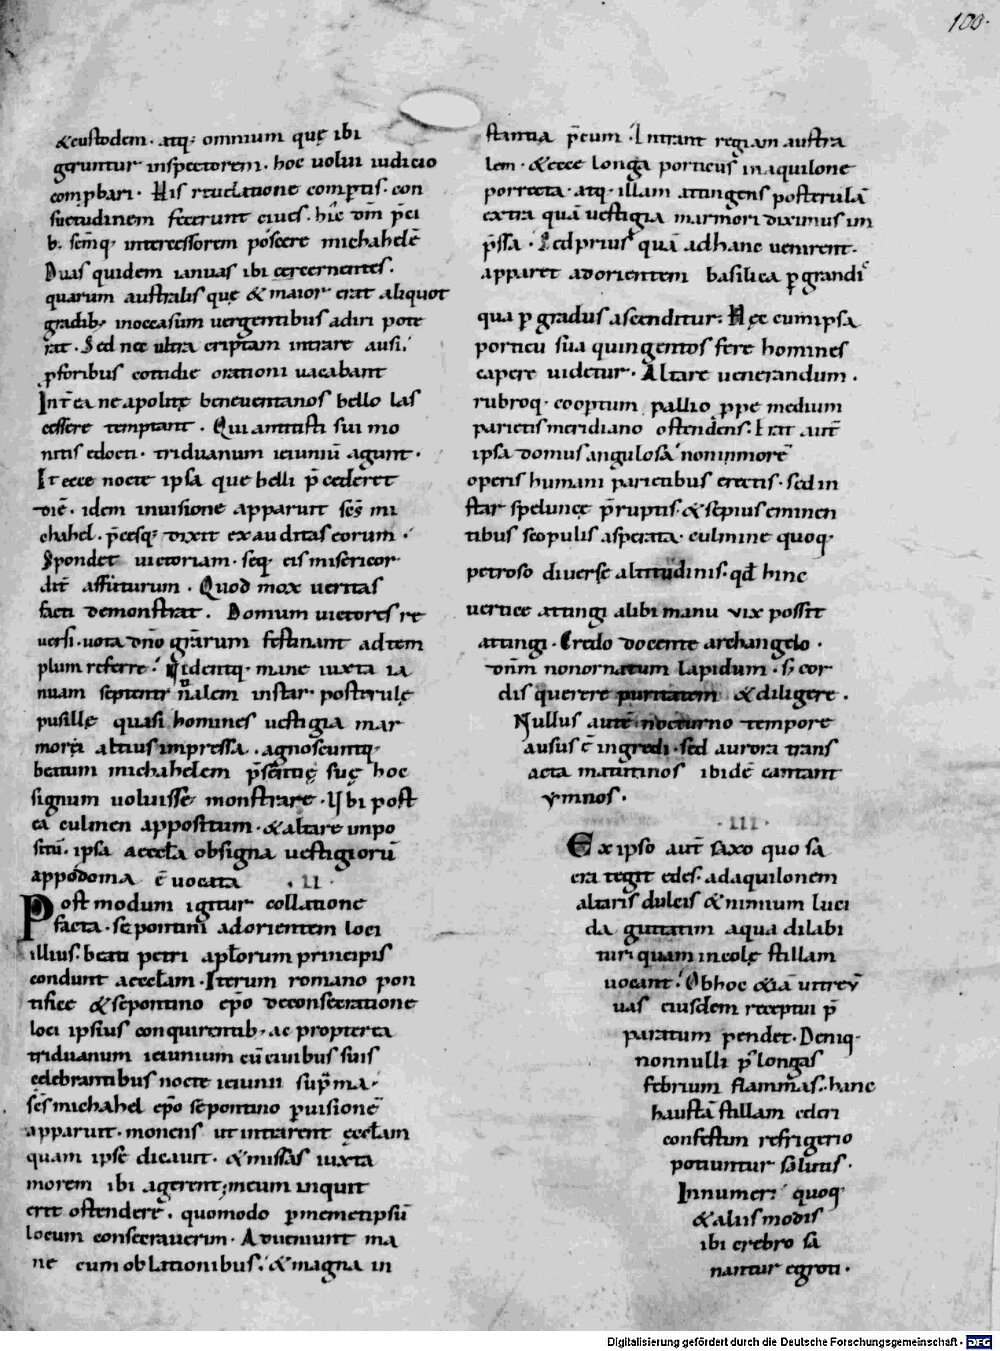 100.
&custodem· atq; omnium quę ibi
geruntur inspectorem· hoc uolui iudicio
comp̱bari· His reuelatione comp̱tis· con
suetudinem fecerunt ciues· hic dm̄ p̄ci
b; semꝑq; intercessorem poscere michahelē
Duas quidem ianuas ibi cercernentes·
quarum australis quę & maior erat aliquot
gradib; inoccasum uergentibus adiri pote
rat· Sed nec ultra criptam intrare ausi·
p̱foribus cottidie orationi uacabant
Int̄ea neapolitę beneuentanos bello las
cessere temptant· Qui antistiti sui mo
nitis edocti· triduanum ieiuniū agunt·
Et ecce nocte ipsa que belli p̄cederet
diē· idem inuisione apparuit sc̄s mi
chahel· p̄cesq; dixit exauditas eorum·
Spondet uictoriam· seq; eis misericor
dit̄ affuturum· Quod mox ueritas
facti demonstrat· Domum uictores re
uersi· uota dn̄o gr̄arum festinant adtem
plum referre· Uidentq; mane iuxta ia
nuam septentrionalem instar posterulę
pusillę quasi homines uestigia mar
mori altius impressa· agnoscuntq;
beatum michahelem p̄sentię suę hoc
signum uoluisse monstrare· Vbi post
ea culmen appositum· & altare impo
sitū· ipsa accct̄a obsigna uestigiorū
appodoma ē uocata ·II·
Post modum igitur collatione
facta· sepontini adorientem loci
illius· beati petri apl̄orum principis
condunt acccl̄am· Iterum romano pon
tifice & sepontino ep̄o deconsecratione
loci ipsius conquirentib; ac propterea
triduanum ieiunium cū ciuibus suis
celebrantibus nocte ieiunii sup̄ma·
sc̄s michahel ep̄o sepontino ꝑuisionē
apparuit· monens ut intrarent ęccl̄am
quam ipse dicauit· & missas iuxta
morem ibi agerent; meum inquit
erit ostenderē· quomodo ꝑmemetipsū
locum consecrauerim· Adueniunt ma
ne cum oblationibus· & magna in
stantia p̄cum· Intrant regiam austra
lem· & ecce longa porticus inaquilone
porrecta· atq; illam attingens posterulā
extra quā uestigia marmori diximus im
p̄ssa· Sed prius quā adhanc uenirent·
apparet adorientem basilica p̱grandis
qua ꝑ gradus ascenditur· Hęc cumipsa
porticu sua quingentos fere homines
capere uidetur· Altare uenerandum·
rubroq; coop̱tum pallio ꝓpe medium
parietis meridiano ostendens· Erat aut̄
ipsa domus angulosa· noninmorē
operis humani parietibus erectis· sed in
star speluncę p̄ruptis· & sepius eminen
tibus scopulis asperata· culmine quoq;
petroso diuerse altitudinis· qđ hinc
uertice attingi alibi manu vix possit
attingi· Credo docente archangelo·
dn̄m nonornatum lapidum· s; cor
dis querere puritatem & diligere·
Nullus autē nocturno tempore
ausus ē ingredi· sed aurora trans
acta matutinos ibidē cantant
ymnos·
·III·
Ex ipso aut̄ saxo quo sa
cra tegit edes· adaquilonem
altaris dulcis & nimium luci
da guttatim aqua dilabi
tur· quam incolę stillam
uocant· Obhoc & iā uitrev̄
uas eiusdem receptui p̄
paratum pendet· Deniq;
nonnulli p̄longas
febrium flammas· hanc
haustā stillam celeri
confestim refrigerio
potiuntur salutis·
Innumeri quoq;
& aliis modis
ibi crebro sa
nantur egroti·
Digitalisierung gefördert durch die Deutsche Forschungsgemeinschaft - DFG